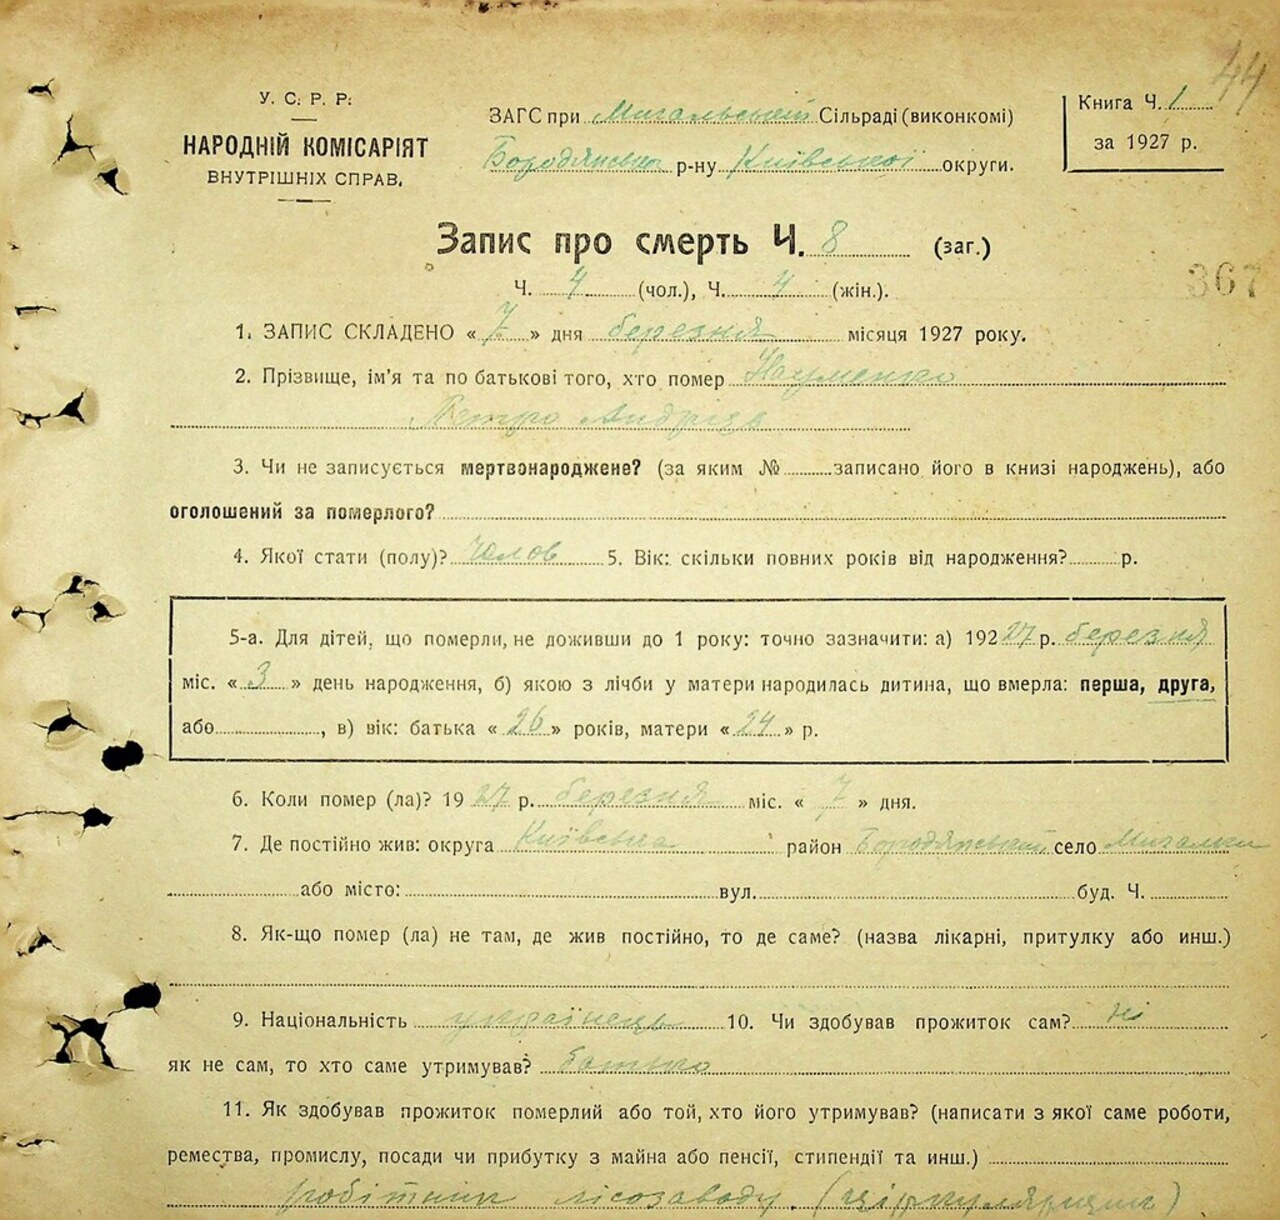 44
У. С. Р. Р.
НАРОДНІЙ КОМІСАРІЯТ
ВНУТРІШНІХ СПРАВ.
ЗАГС при Мигальській Сільраді (виконкомі)
Бородянська р-ну Київської округи.
Книга Ч. 1
за 1927 р.
Запис про смерть Ч. 8 (заг.)
367
Ч. 4 (чол.), Ч. 4 (жін.).
1. ЗАПИС СКЛАДЕНО « 7 » дня березня місяця 1927 року.
2. Прізвище, ім'я та по батькові того, хто помер Науменко
Петро Андріів
3. Чи не записується мертвонароджене? (за яким № записано його в книзі народжень), або
оголошений за померлого?
4. Якої стати (полу)? чолов 5. Вік: скільки повних років від народження? р.
5-а. Для дітей, що померли, не доживши до 1 року: точно зазначити: а) 192 27 р. березня
міс. « 3 » день народження, б) якою з лічби у матери народилась дитина, що вмерла: перша, друга,
або , в) вік: батька « 26 » років, матери « 24 » р.
6. Коли помер (ла)? 19 27 р. березня міс. « 7 » дня.
7. Де постійно жив: округа Київська район Бородянський село Мигалки
або місто: вул. буд. Ч.
8. Як-що помер (ла) не там, де жив постійно, то де саме? (назва лікарні, притулку або инш.)
9. Національність українець 10. Чи здобував прожиток сам? ні
як не сам, то хто саме утримував? батько
11. Як здобував прожиток померлий або той, хто його утримував? (написати з якої саме роботи,
ремества, промислу, посади чи прибутку з майна або пенсії, стипендії та инш.)
робітник лісозаводу. (ціркулярщик)